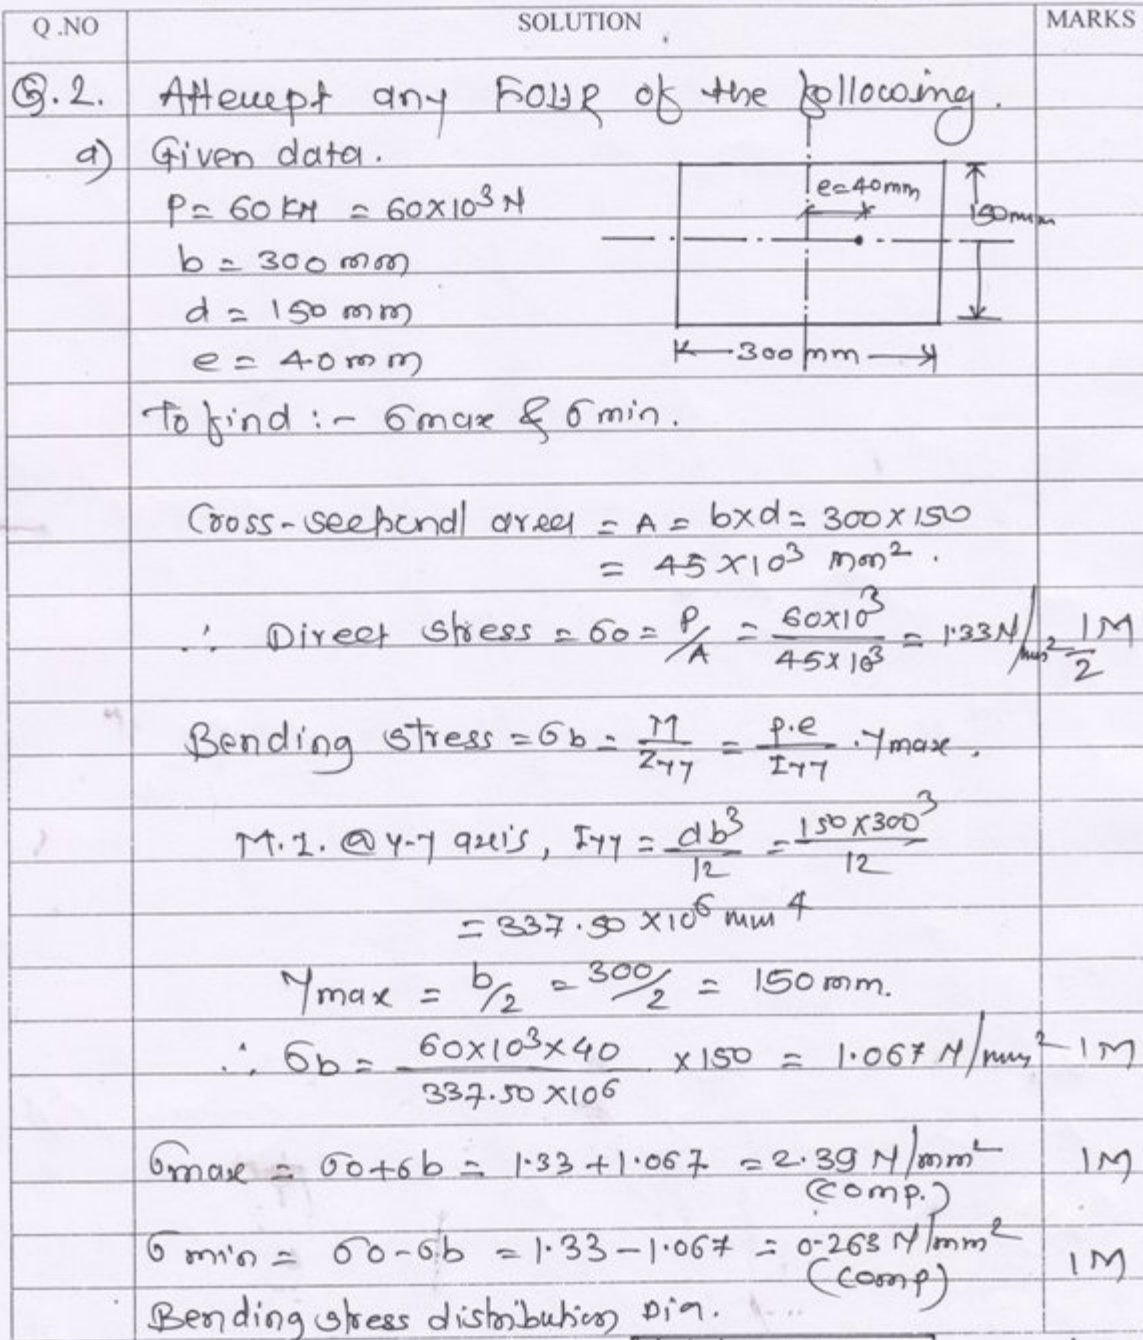 Q.NO SOLUTION MARKS
Q.2. Attempt any FOUR of the following.
a) Given data.
P = 60 KN = 60×10³ N
e=40mm
150mm
b = 300 mm
d = 150 mm
e = 40 mm
300 mm
To find :- σmax & σmin.
Cross-sectional area = A = b×d = 300×150
= 45×10³ mm².
∴ Direct stress = σo = P/A = 60×10³/45×10³ = 1.33 N/mm² 1M/2
Bending stress = σb = M/Zyy = P.e/Iyy . Ymax.
M.I. @ y-y axis, Iyy = db³/12 = 150×300³/12
= 337.50 ×10⁶ mm⁴
Ymax = b/2 = 300/2 = 150 mm.
∴ σb = 60×10³×40/337.50×10⁶ ×150 = 1.067 N/mm² 1M
σmax = σo+σb = 1.33+1.067 = 2.39 N/mm² 1M
(comp.)
σmin = σo-σb = 1.33-1.067 = 0.263 N/mm² 1M
(comp)
Bending stress distribution Dia.